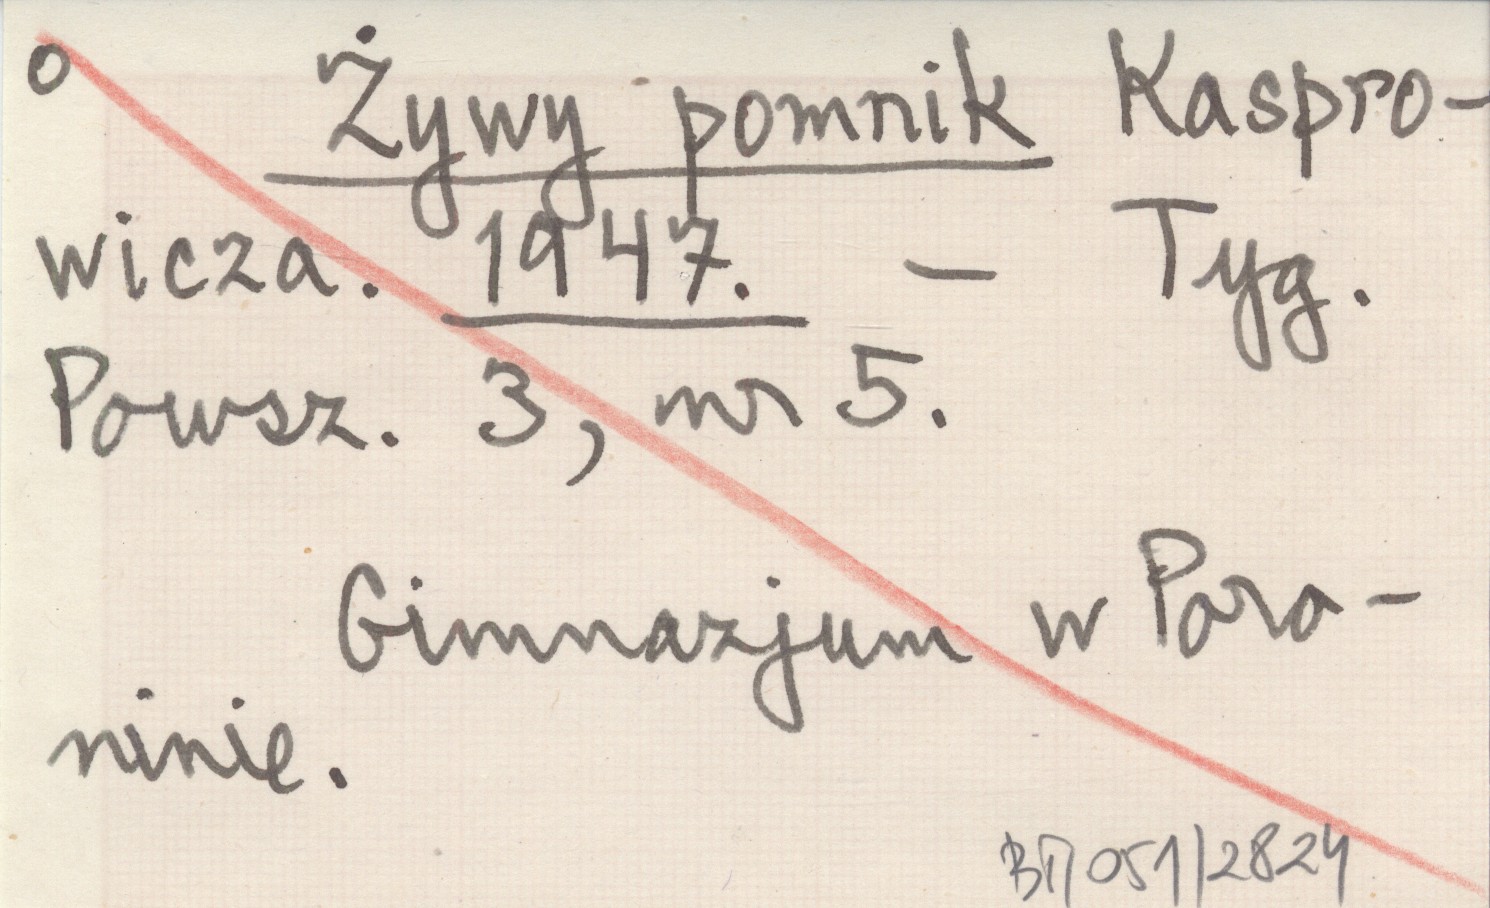 o Żywy pomnik Kaspro-
wicza. 1947. — Tyg.
Powsz. 3, nr 5.
Gimnazjum w Poro-
ninie.
BT/051/2824